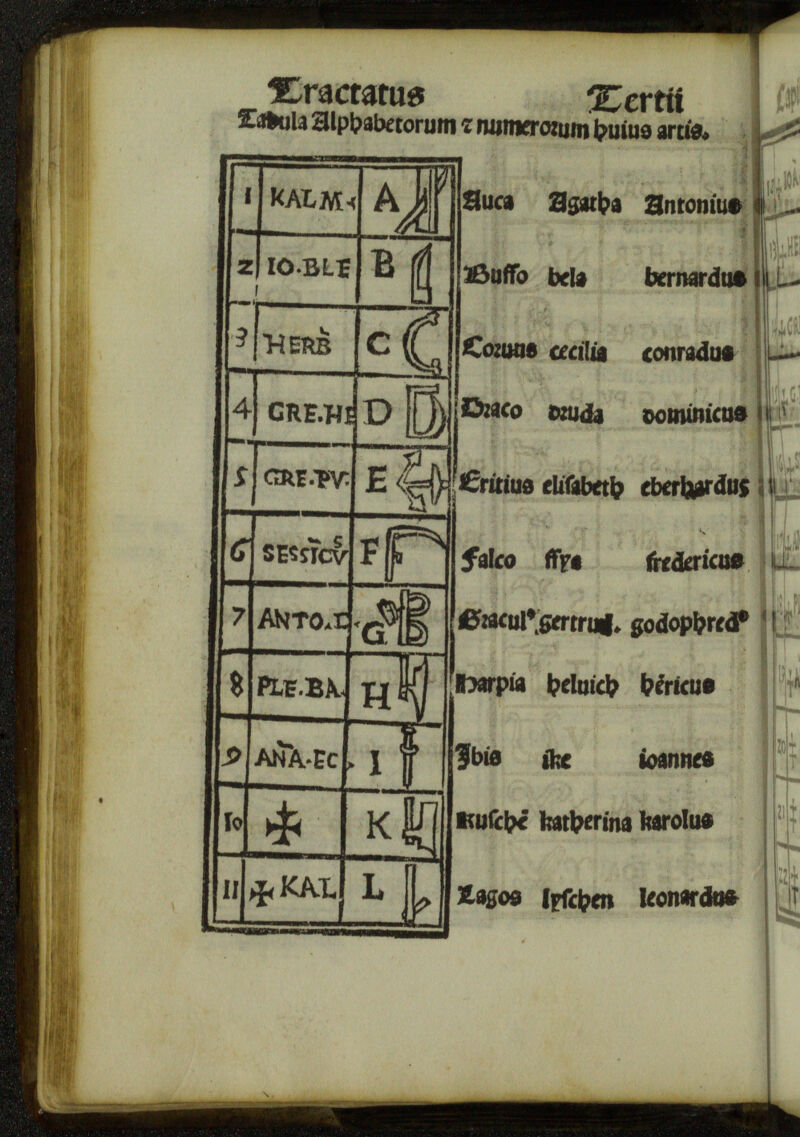 Tractatus Tertii
Tabula Alphabetorum ⁊ numerorum huius artis.
1 KALM A Auca Agatha Antonius
2 IO·BLE B Buffo bela bernardus
3 HERB C Coruus cecilia conradus
4 GRE.HE D Draco druda dominicus
5 GRE·PV· E Eritius elisabeth eberhardus
6 SESSICVS F Falco ffye fredericus
7 ANTO.I G Gracul⁹ gertrud. godophred⁹
8 PLE.BA H Harpia heluich hēricus
9 ANA·EC I Ibis ike ioannes
10 ✠ K Kuschē katherina karolus
11 ✠ KAL L Lagos lyschen leonardus